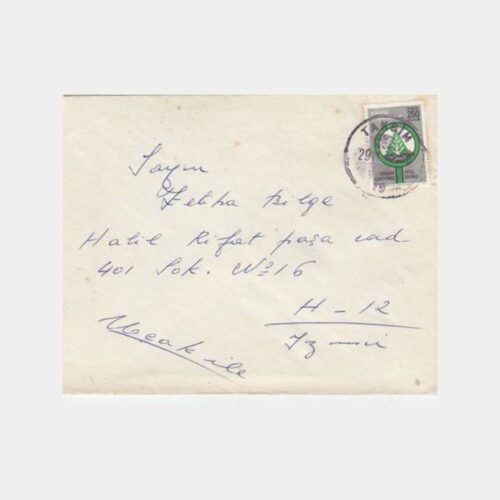 TAKSİM
29
250
Sayın
Zeliha Bilge
Halil Rifat paşa cad
401 Sok. No 16
H - 12
İzmir
Uçak ile